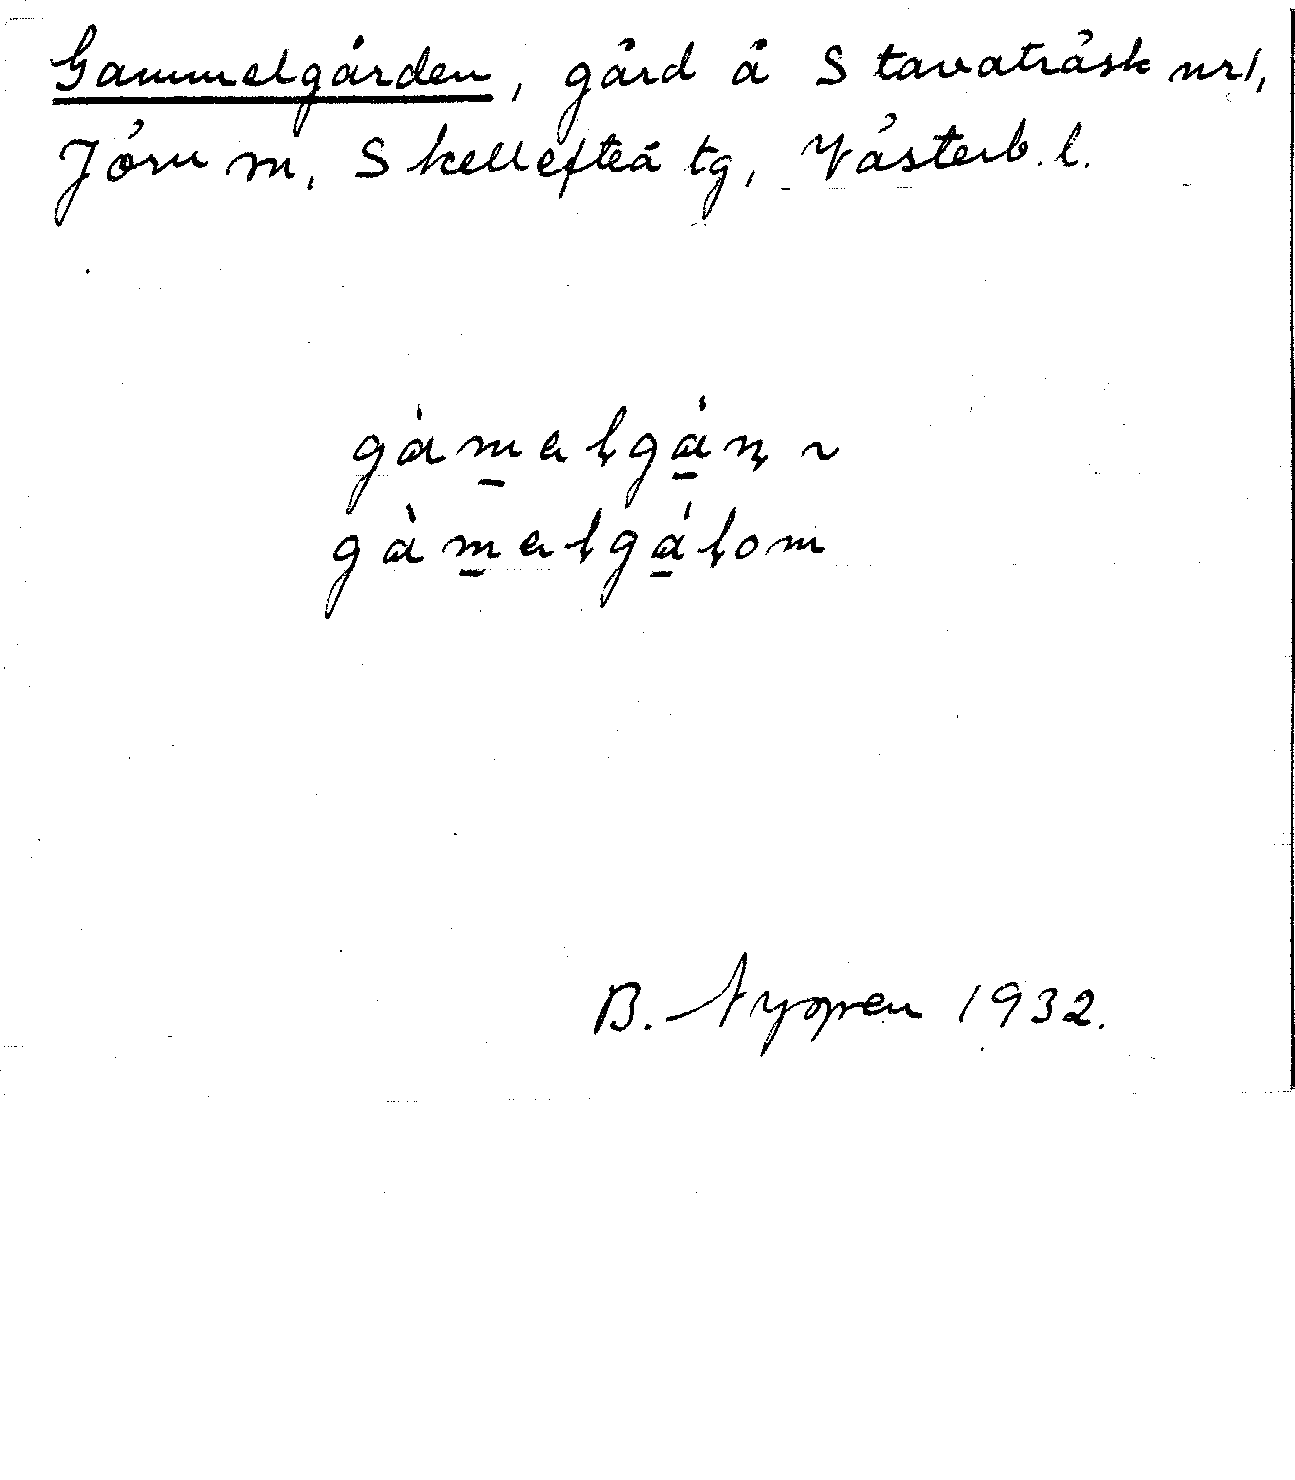 Gammelgården, gård å Stavaträsk nr 1,
Jörn sn, Skellefteå tg, Västerb. l.
gàmalgáṇ ~
gàmalgáḷom
B. Nyman 1932.